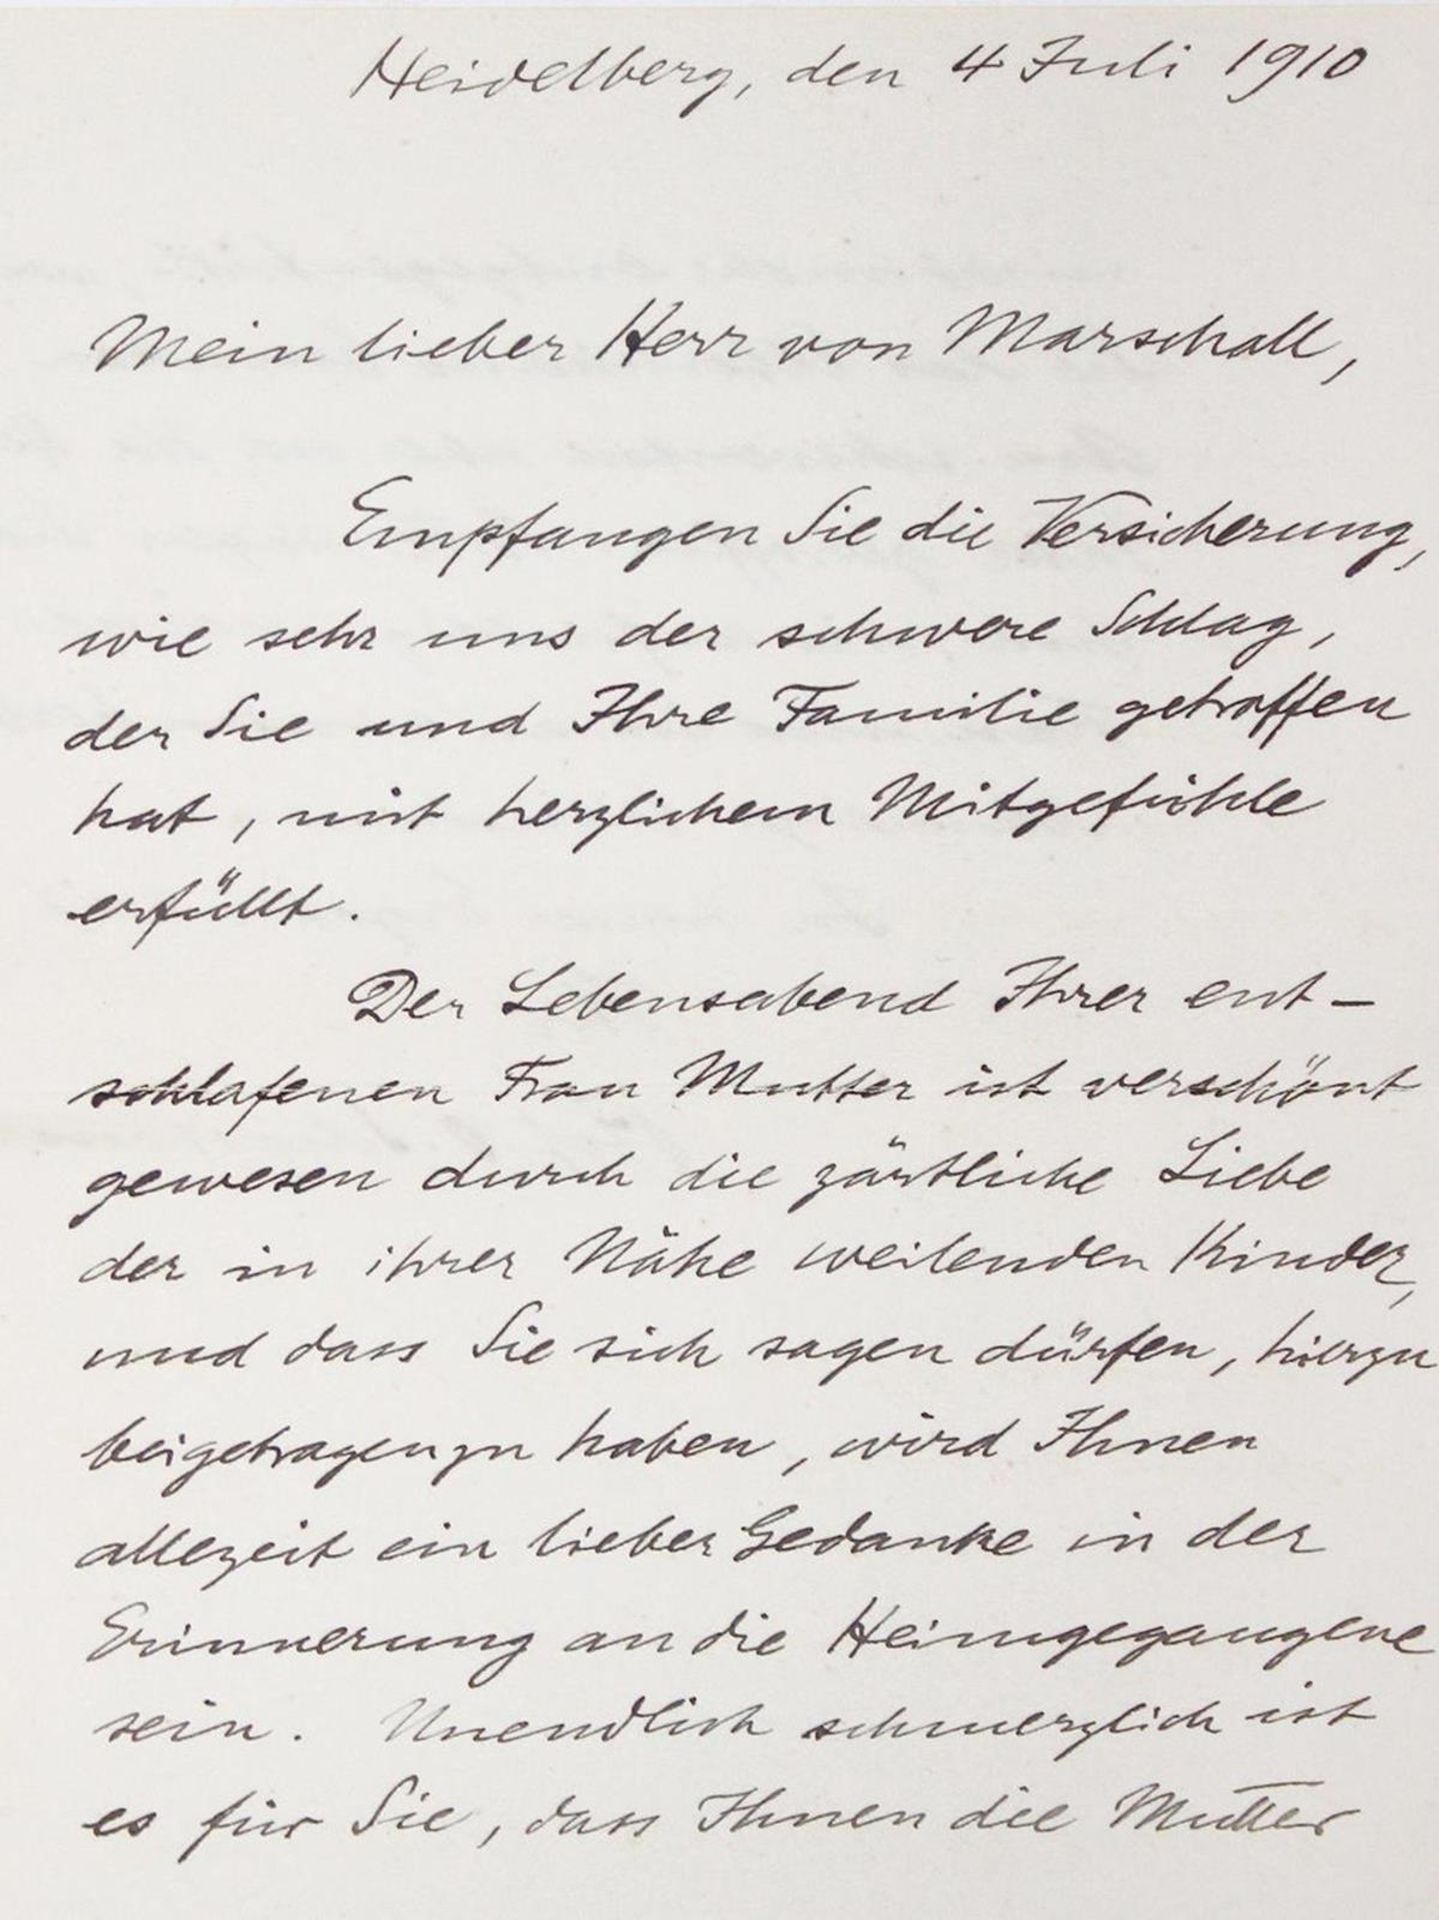 Heidelberg, den 4 Juli 1910
Mein lieber Herr von Marschall,
Empfangen Sie die Versicherung,
wie sehr uns der schwere Schlag,
der Sie und Ihre Familie getroffen
hat, mit herzlichem Mitgefühle
erfüllt.
Der Lebensabend Ihrer ent-
schlafenen Frau Mutter ist verschönt
gewesen durch die zärtliche Liebe
der in ihrer Nähe weilenden Kinder,
und dass Sie sich sagen dürfen, hierzu
beigetragen zu haben, wird Ihnen
allezeit ein lieber Gedanke in der
Erinnerung an die Heimgegangene
sein. Unendlich schmerzlich ist
es für Sie, dass Ihnen die Mutter